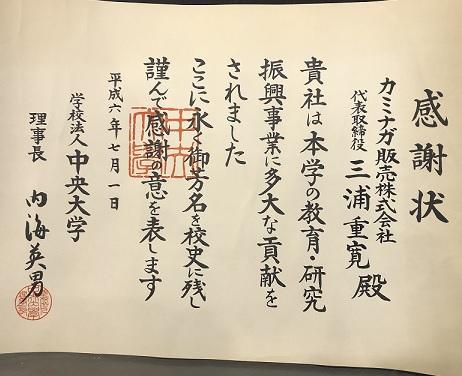 感謝状
カミナガ販売株式会社
代表取締役 三浦重寛 殿
貴社は本学の教育・研究
振興事業に多大な貢献を
されました
ここに永く御芳名を校史に残し
謹んで感謝の意を表します
平成六年七月一日
学校法人 中央大学
理事長 内海英男